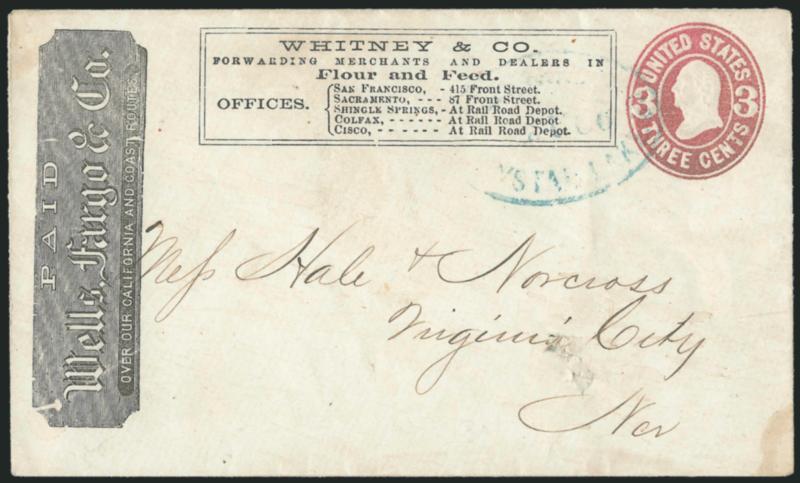 PAID
Wells, Fargo & Co.
OVER OUR CALIFORNIA AND COAST ROUTES.
WHITNEY & CO.
FORWARDING MERCHANTS AND DEALERS IN
Flour and Feed.
OFFICES.
SAN FRANCISCO, - 415 Front Street.
SACRAMENTO, - - - 87 Front Street.
SHINGLE SPRINGS, - At Rail Road Depot.
COLFAX, - - - - - - At Rail Road Depot
CISCO, - - - - - - At Rail Road Depot.
UNITED STATES
3 3
THREE CENTS
Mess Hale & Norcross
Virginia City
Nev